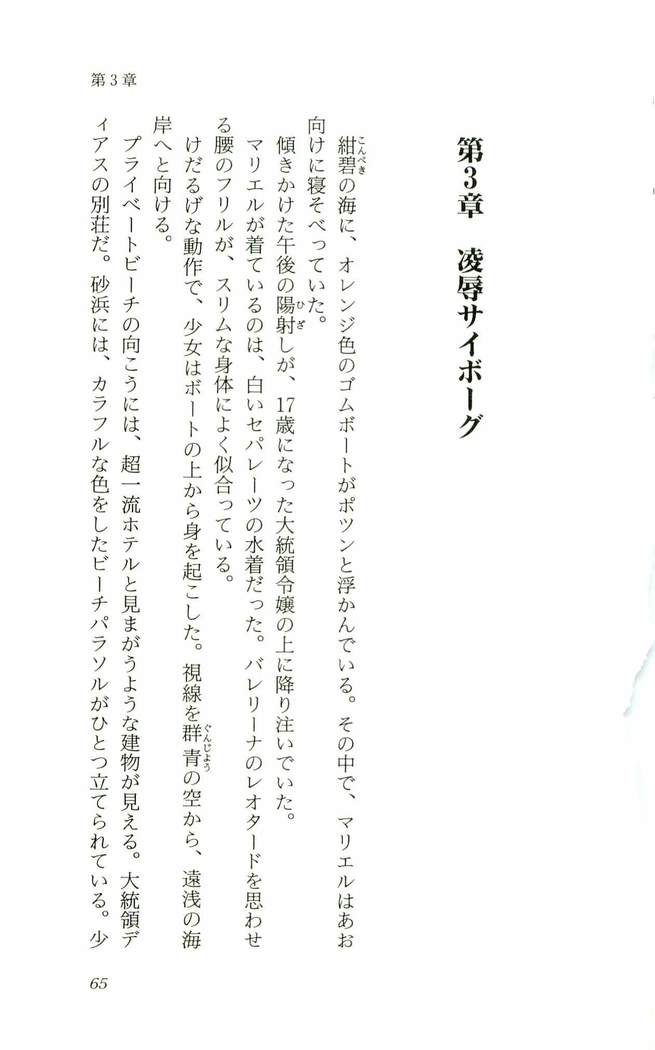 第3章
第3章　凌辱サイボーグ
紺碧の海に、オレンジ色のゴムボートがポツンと浮かんでいる。その中で、マリエルはあお
こんぺき
向けに寝そべっていた。
傾きかけた午後の陽射しが、17歳になった大統領令嬢の上に降り注いでいた。
ひざ
マリエルが着ているのは、白いセパレーツの水着だった。バレリーナのレオタードを思わせ
る腰のフリルが、スリムな身体によく似合っている。
けだるげな動作で、少女はボートの上から身を起こした。視線を群青の空から、遠浅の海
ぐんじょう
岸へと向ける。
プライベートビーチの向こうには、超一流ホテルと見まがうような建物が見える。大統領デ
ィアスの別荘だ。砂浜には、カラフルな色をしたビーチパラソルがひとつ立てられている。少
65